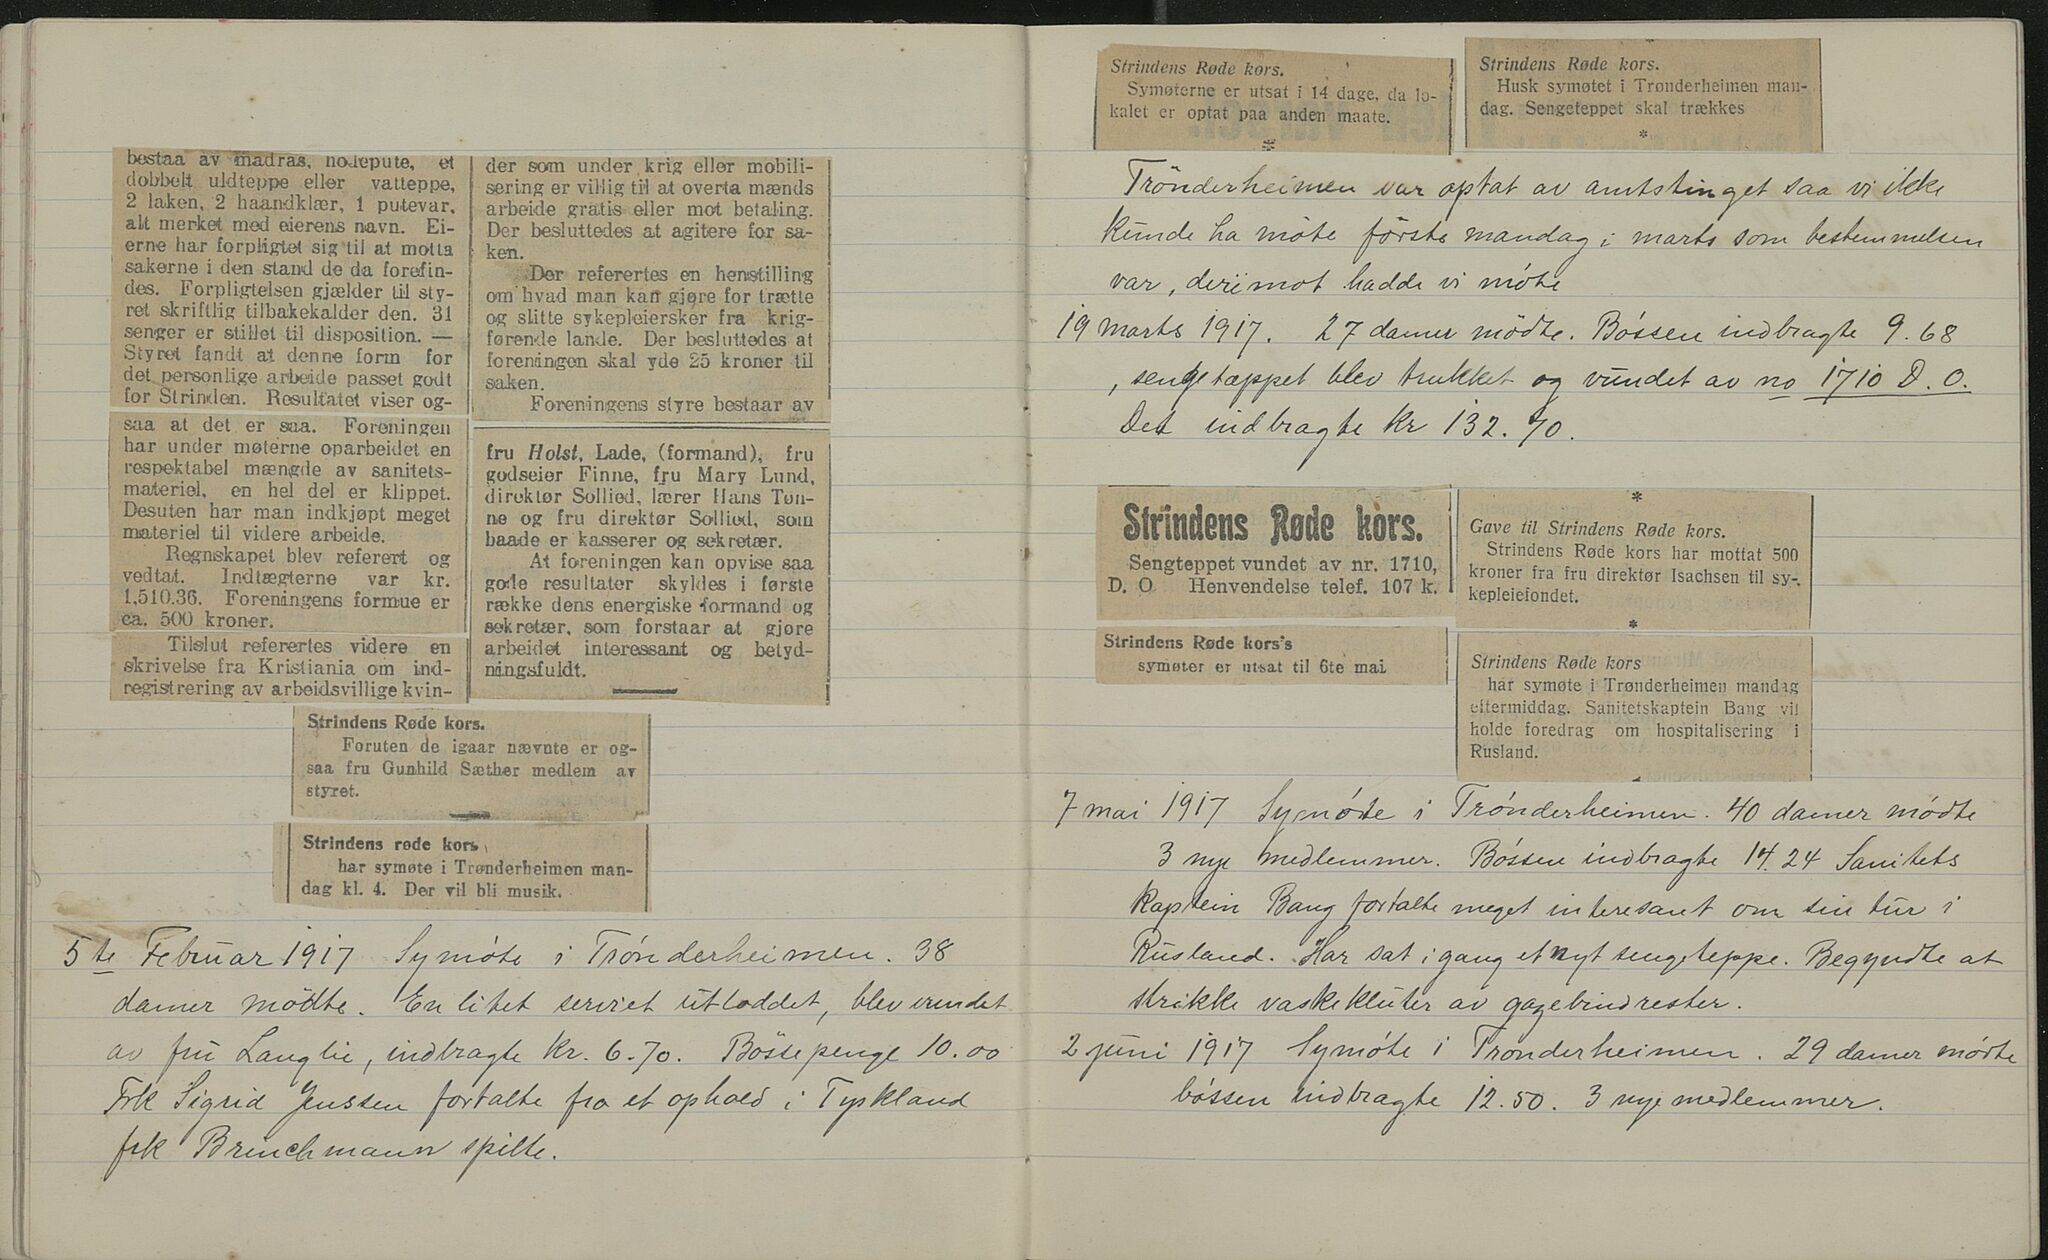 bestaa av madras, hodepute, et
dobbelt uldteppe eller vatteppe,
2 laken, 2 haandklær, 1 putevar,
alt merket med eierens navn. Ei-
erne har forpligtet sig til at motta
sakerne i den stand de da forefin-
des. Forpligtelsen gjælder til sty-
ret skriftlig tilbakekalder den. 31
senger er stillet til disposition. —
Styret fandt at denne form for
det personlige arbeide passet godt
for Strinden. Resultatet viser og-
saa at det er saa. Foreningen
har under møterne oparbeidet en
respektabel mængde av sanitets-
materiel, en hel del er klippet.
Desuten har man indkjøpt meget
materiel til videre arbeide.
Regnskapet blev referert og
vedtat. Indtægterne var kr.
1,510.36. Foreningens formue er
ca. 500 kroner.
Tilslut referertes videre en
skrivelse fra Kristiania om ind-
registrering av arbeidsvillige kvin-
der som under krig eller mobili-
sering er villig til at overta mænds
arbeide gratis eller mot betaling.
Der besluttedes at agitere for sa-
ken.
Der referertes en henstilling
om hvad man kan gjøre for trætte
og slitte sykepleiersker fra krig-
førende lande. Der besluttedes at
foreningen skal yde 25 kroner til
saken.
Foreningens styre bestaar av
fru Holst, Lade, (formand), fru
godseier Finne, fru Mary Lund,
direktør Sollied, lærer Hans Tøn-
ne og fru direktør Sollied, som
baade er kasserer og sekretær.
At foreningen kan opvise saa
gode resultater skyldes i første
række dens energiske formand og
sekretær, som forstaar at gjøre
arbeidet interessant og betyd-
ningsfuldt.
Strindens Røde kors.
Foruten de igaar nævnte er og-
saa fru Gunhild Sæther medlem av
styret.
Strindens røde kors
har symøte i Trønderheimen man-
dag kl. 4. Der vil bli musik.
5te Februar 1917 Symøte i Trónderheimen. 38
damer mödte. En litet serviet utloddet, blev vundet
av fru Langlie, indbragte kr. 6.70. Bössepenge 10.00
Frk Sigrid Jenssen fortalte fra et ophold i Tyskland
frk Brinchmann spilte.
Strindens Røde kors.
Symøterne er utsat i 14 dage, da lo-
kalet er optat paa anden maate.
*
Strindens Røde kors.
Husk symøtet i Trønderheimen man-
dag. Sengeteppet skal trækkes
*
Trönderheimen var optat av amtstinget saa vi ikke
kunde ha möte förste mandag i marts som bestemmelsen
var, derimot hadde vi møte
19 marts 1917. 27 damer mödte. Bóssen indbragte 9.68
, sengetæppet blev trukket og vundet av no 1710 D.O.
Det indbragte kr 132.70.
Strindens Røde kors.
Sengteppet vundet av nr. 1710,
D. O Henvendelse telef. 107 k.
*
Gave til Strindens Røde kors.
Strindens Røde kors har mottat 500
kroner fra fru direktør Isachsen til sy-
kepleiefondet.
*
Strindens Røde kors's
symøter er utsat til 6te mai
Strindens Røde kors
har symøte i Trønderheimen mandag
eftermiddag. Sanitetskaptein Bang vil
holde foredrag om hospitalisering i
Rusland.
7 mai 1917 Symóte i Trónderheimen. 40 damer módte
3 nye medlemmer. Bóssen indbragte 14.24 Sanitets
kaptein Bang fortalte meget interesant om sin tur i
Rusland. Har sat i gang et nyt sengeteppe. Begyndte at
strikke vaskekluter av gazebindrester.
2 juni 1917 Symóte i Trønderheimen. 29 damer mødte
bóssen indbragte 12.50. 3 nye medlemmer.